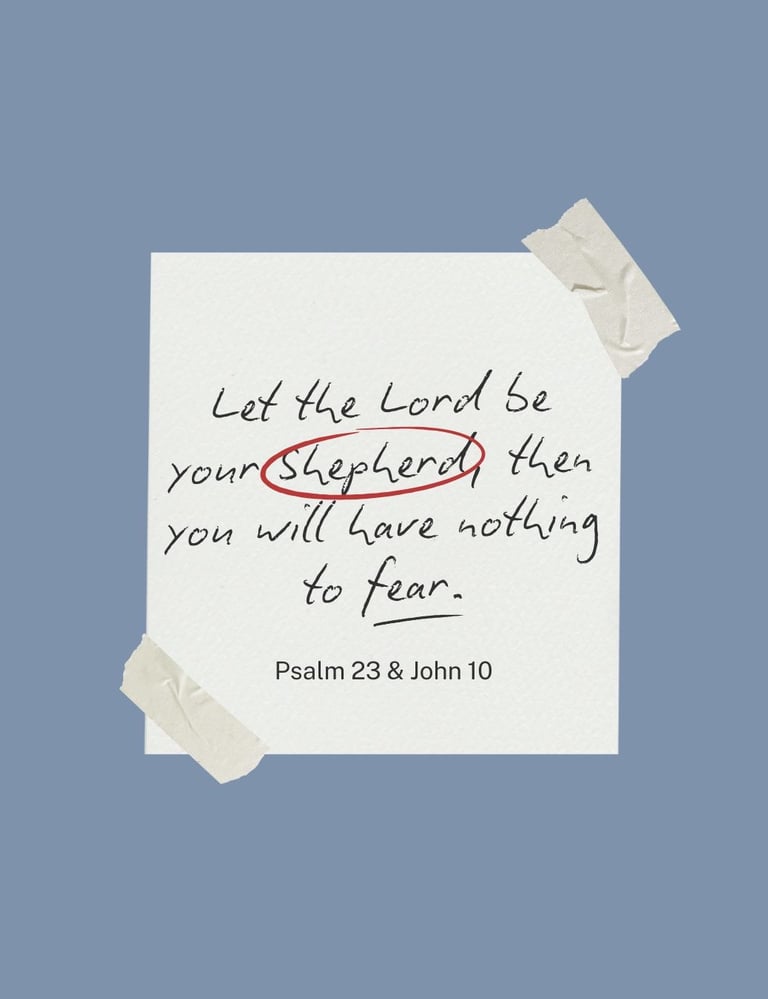 Let the Lord be
your Shepherd, then
you will have nothing
to fear.
Psalm 23 & John 10